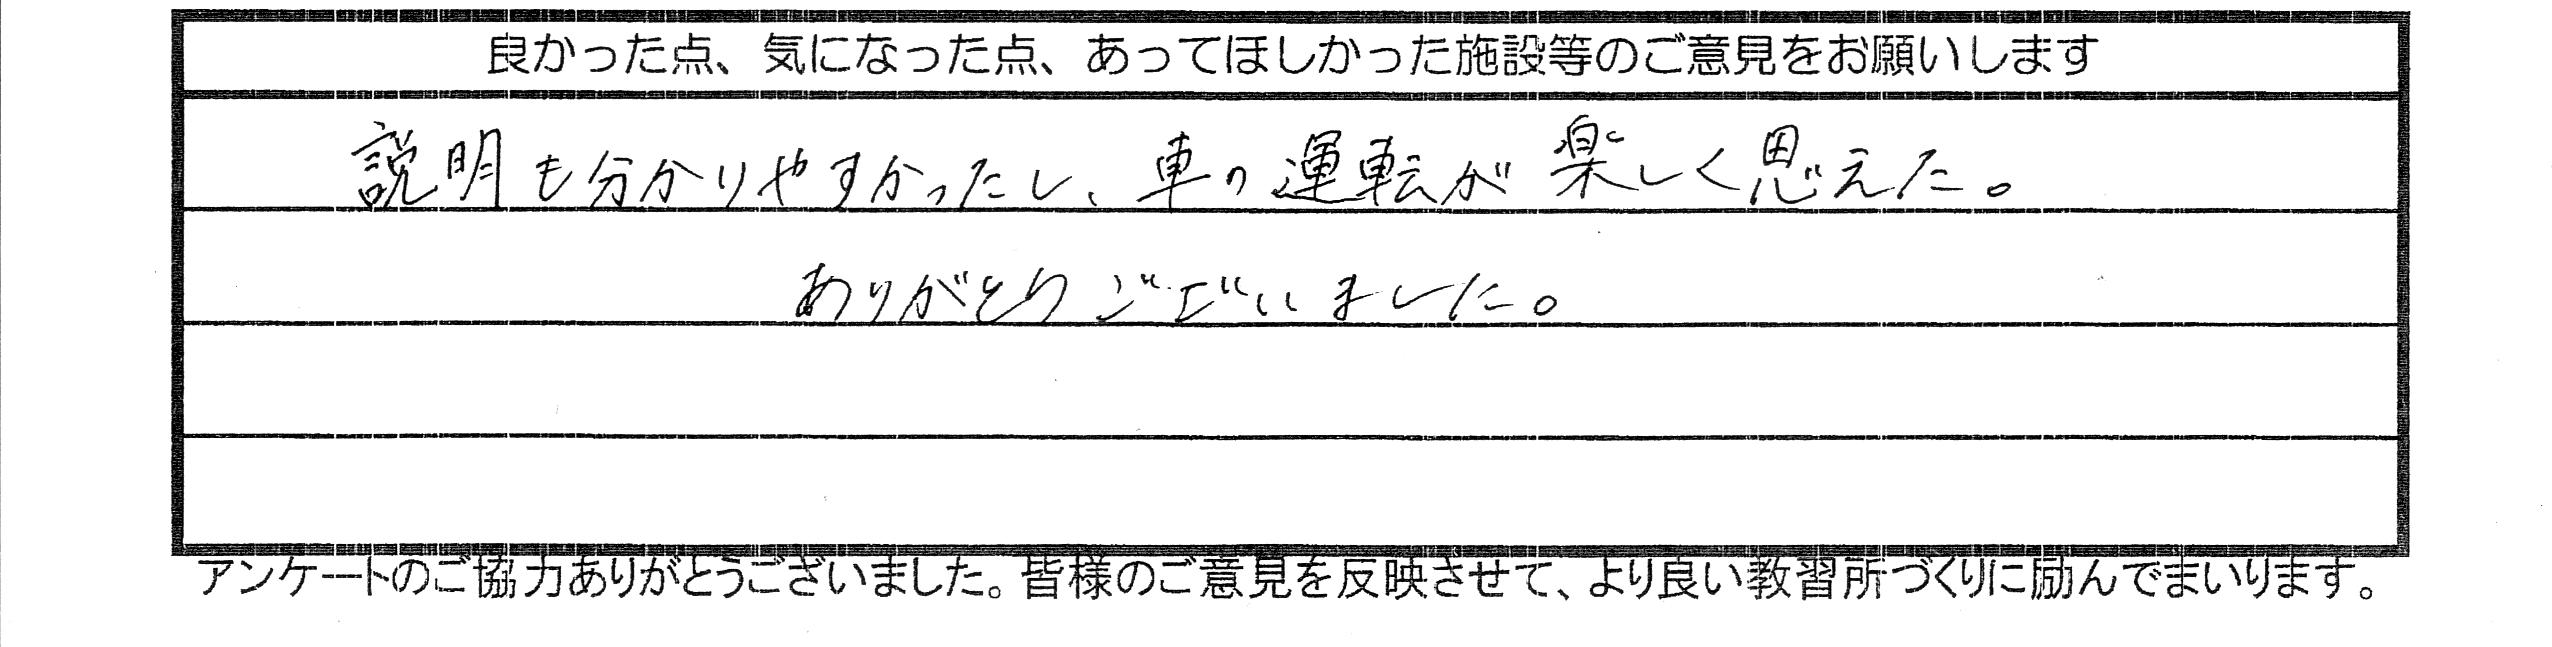 良かった点、気になった点、あってほしかった施設等のご意見をお願いします
説明も分かりやすかったし、車の運転が楽しく思えた。
ありがとうございました。
アンケートのご協力ありがとうございました。皆様のご意見を反映させて、より良い教習所づくりに励んでまいります。